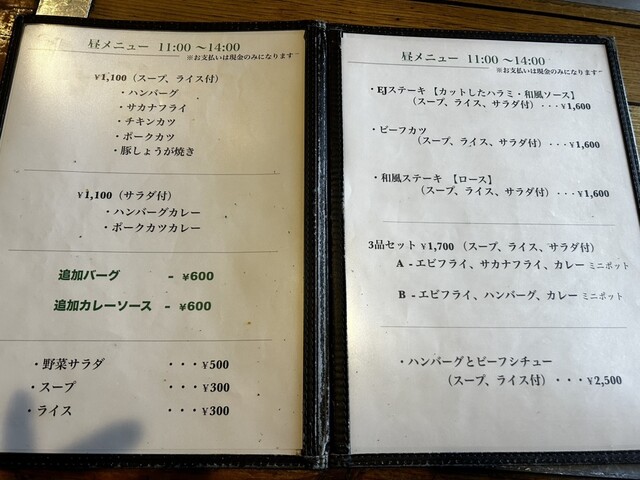 昼メニュー 11:00 ～14:00
※お支払いは現金のみになります
¥1,100（スープ、ライス付）
・ハンバーグ
・サカナフライ
・チキンカツ
・ポークカツ
・豚しょうが焼き
¥1,100（サラダ付）
・ハンバーグカレー
・ポークカツカレー
追加バーグ - ¥600
追加カレーソース - ¥600
・野菜サラダ ・・・¥500
・スープ ・・・¥300
・ライス ・・・¥300
昼メニュー 11:00 ～14:00
※お支払いは現金のみになります
・EJステーキ【カットしたハラミ・和風ソース】
（スープ、ライス、サラダ付）・・・¥1,600
・ビーフカツ
（スープ、ライス、サラダ付）・・・¥1,600
・和風ステーキ 【ロース】
（スープ、ライス、サラダ付）・・・¥1,600
3品セット ¥1,700（スープ、ライス、サラダ付）
A - エビフライ、サカナフライ、カレー ミニポット
B - エビフライ、ハンバーグ、カレー ミニポット
・ハンバーグとビーフシチュー
（スープ、ライス付）・・・¥2,500